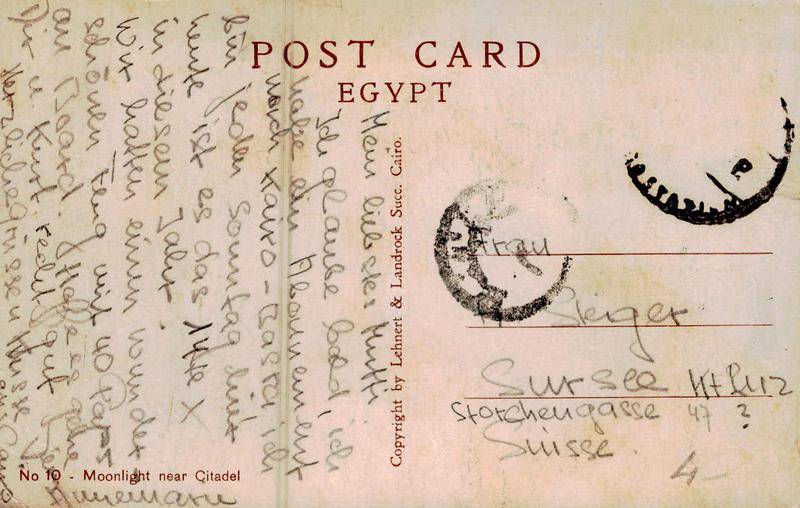 POST CARD
EGYPT
Mein liebstes Mutti
Ich glaube bald, ich
habe ein Abonnement
nach Kairo - Basta ich
bin jeden Sonntag dort
heute ist es das 14te X
in diesem Jahr.
Wir hatten einen wunder
schönen Flug mit 40 Paxs
an Board. Hoffe es gehe
Dir u. Kurt recht gut
Herzliche Grüsse u Küsse
Annemarie
Copyright by Lehnert & Landrock Succ. Cairo.
Frau
Steiger
Sursee Kt Luz
Storchengasse 47 ?
Suisse.
4-
No 10 - Moonlight near Citadel